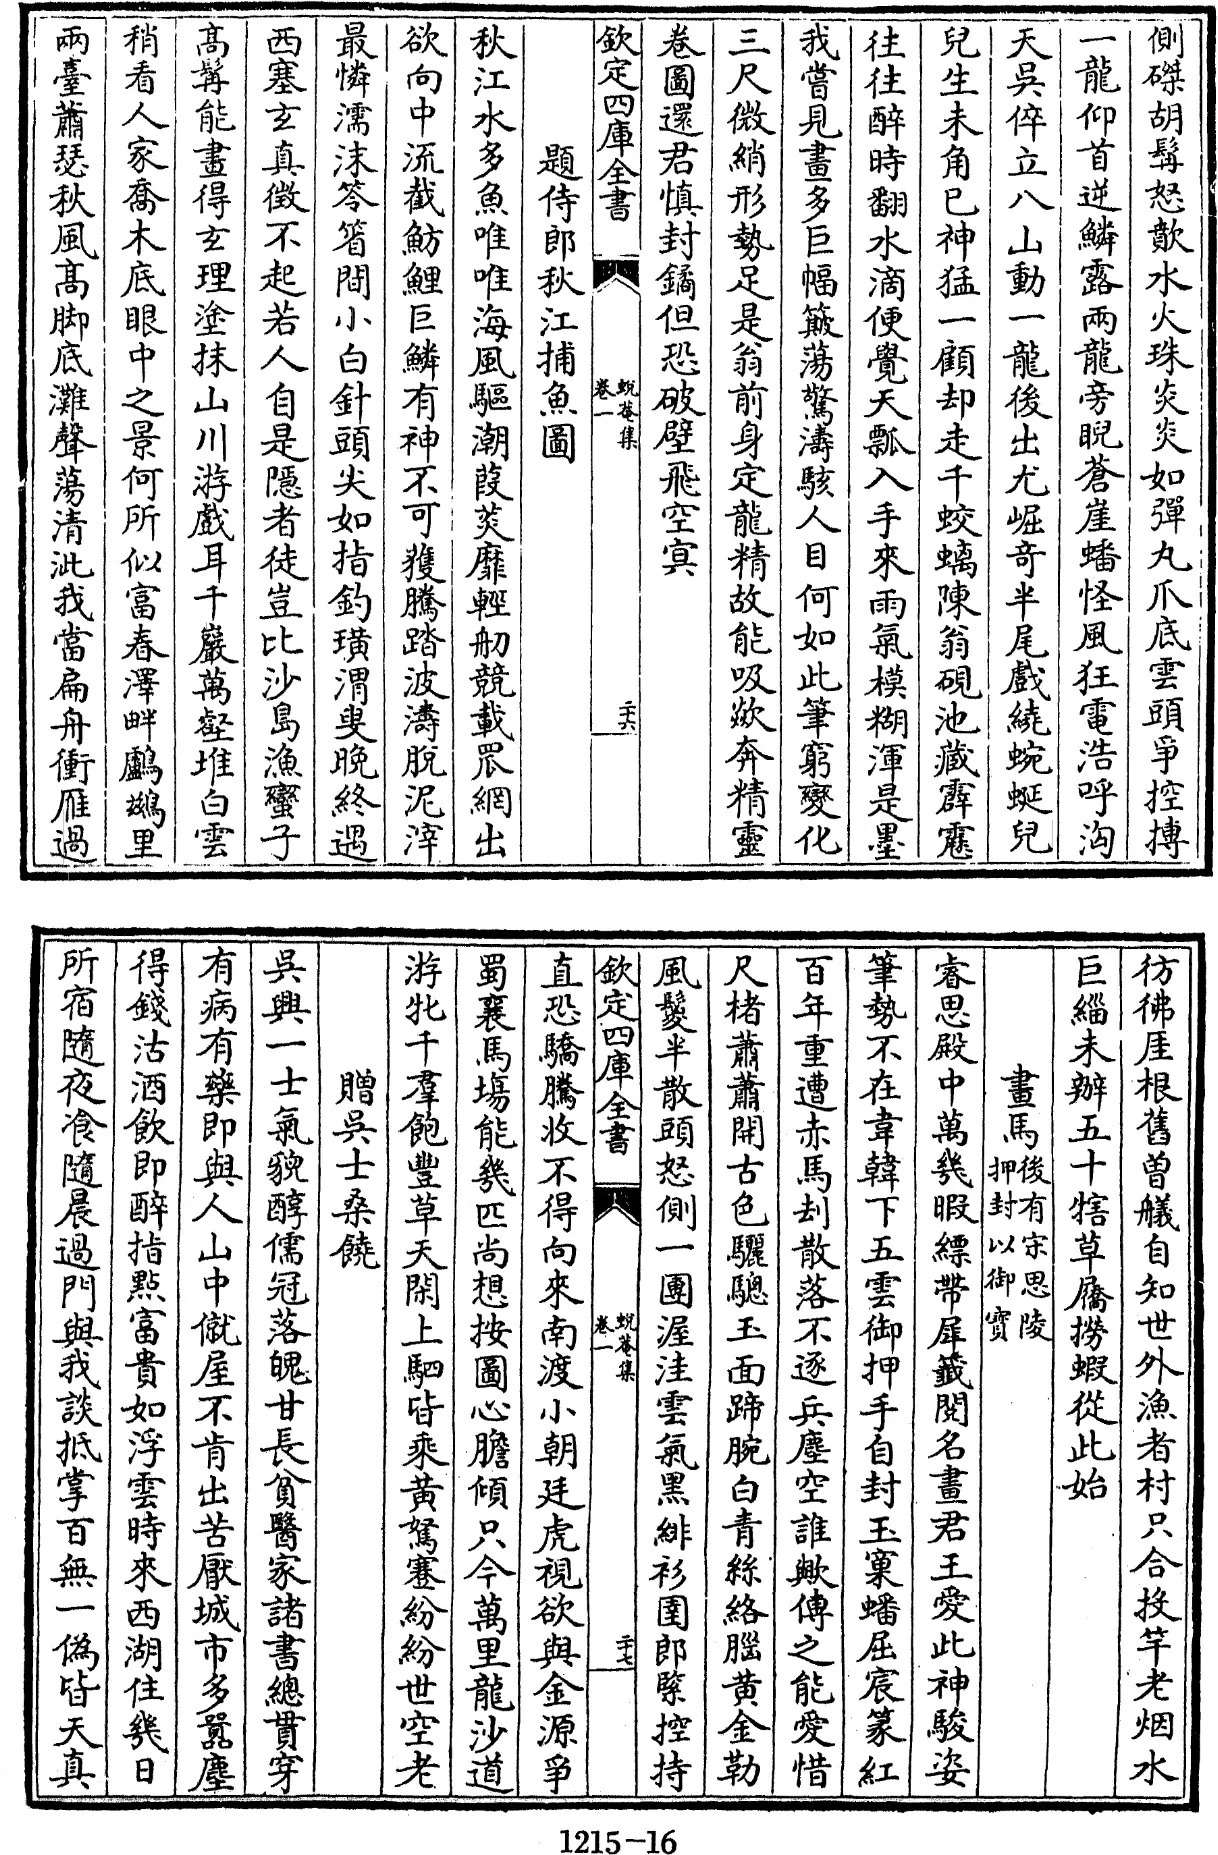 側磔胡髯怒歕水火珠炎炎如彈丸爪底雲頭爭控搏
一龍仰首逆鱗露兩龍旁睨蒼崖蟠怪風狂電浩呼洶
天吳倅立八山動一龍後出尤崛奇半尾戲繞蜿蜒兒
兒生未角已神猛一顧却走千蛟螭陳翁硯池藏霹靂
往往醉時翻水滴便覺天瓢入手來雨氣模糊渾是墨
我嘗見畫多巨幅簸蕩驚濤駭人目何如此筆窮變化
三尺微綃形勢足是翁前身定龍精故能吸歘奔精靈
卷圖還君慎封鐍但恐破壁飛空冥
欽定四庫全書
蛻菴集
卷一
二十六
題侍郎秋江捕魚圖
秋江水多魚唯唯海風驅潮葭菼靡輕舠競載罛網出
欲向中流截魴鯉巨鱗有神不可獲騰踏波濤脫泥滓
最憐濡沫笭箵間小白針頭尖如指釣璜渭叟晚終遇
西塞玄真徵不起若人自是隱者徒豈比沙島漁蠻子
髙髯能畫得玄理塗抹山川游戲耳千巖萬壑堆白雲
稍看人家喬木底眼中之景何所似富春澤畔鸕鷀里
兩臺蕭瑟秋風髙脚底灘聲蕩清泚我當扁舟衝雁過
彷彿厓根舊曾艤自知世外漁者村只合投竿老烟水
巨緇未辦五十犗草屩撈蝦從此始
畫馬後有宋思陵押封以御寶
睿思殿中萬幾暇縹帶犀籤閱名畫君王愛此神駿姿
筆勢不在韋韓下五雲御押手自封玉窠蟠屈宸篆紅
百年重遭赤馬刦散落不逐兵塵空誰歟傳之能愛惜
尺楮蕭蕭開古色驪驄玉面蹄腕白青絲絡腦黄金勒
風鬉半散頭怒側一團渥洼雲氣黑緋衫圉郎緊控持
欽定四庫全書
蛻菴集
卷一
二十七
直恐驕騰收不得向來南渡小朝廷虎視欲與金源爭
蜀襄馬塲能幾匹尚想按圖心膽傾只今萬里龍沙道
游牝千羣飽豐草天閑上駟皆乘黄駑蹇紛紛世空老
贈吳士桑饒
吳興一士氣貌醇儒冠落魄甘長貧醫家諸書總貫穿
有病有藥即與人山中僦屋不肯出苦厭城市多囂塵
得錢沽酒飲即醉指點富貴如浮雲時來西湖住幾日
所宿隨夜飡隨晨過門與我談抵掌百無一偽皆天真
1215-16